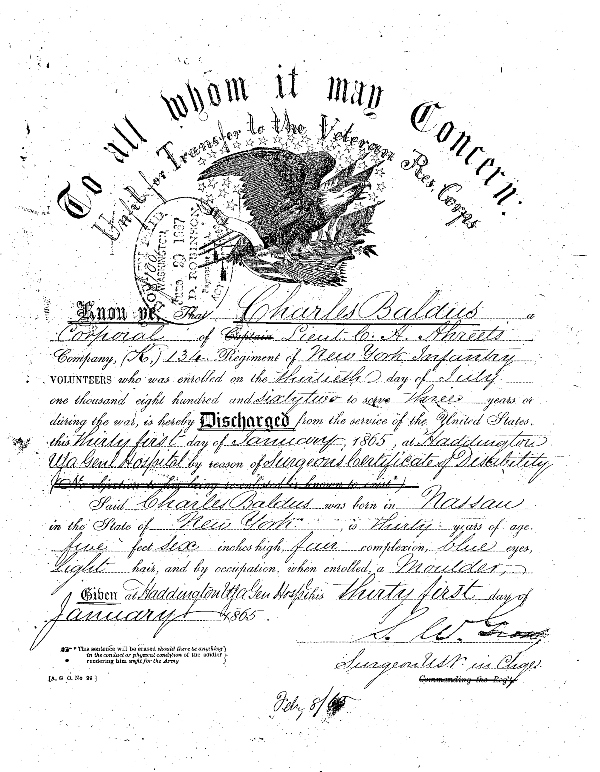 To all whom it may Concern:
Unfit for Transfer to the Veteran Res. Corps
BOUNTY PAID
WASHINGTON
29 1867
D. ROBINSON
Know ye, That Charles Baldus a
Corporal of Captain Lieut. C. A. Ahreets
Company, (K.) 134 Regiment of New York Infantry
VOLUNTEERS who was enrolled on the thirtieth day of July
one thousand eight hundred and sixty two to serve three years or
during the war, is hereby Discharged from the service of the United States,
this thirty first day of January, 1865, at Haddington
USA Genl Hospital by reason of Surgeons Certificate of Disability
(No objection to his being re-enlisted is known to exist*)
Said Charles Baldus was born in Nassau
in the State of New York, is thirty years of age,
five feet six inches high, fair complexion, blue eyes,
light hair, and by occupation, when enrolled, a Moulder,
Given at Haddington USA Gen Hosp this thirty first day of
January 1865.
S. W.
Surgeon USV. in Chge.
Commanding the Reg't
* This sentence will be erased should there be anything
in the conduct or physical condition of the soldier
rendering him unfit for the Army
[A. G. O. No 99]
Feb, 8/65